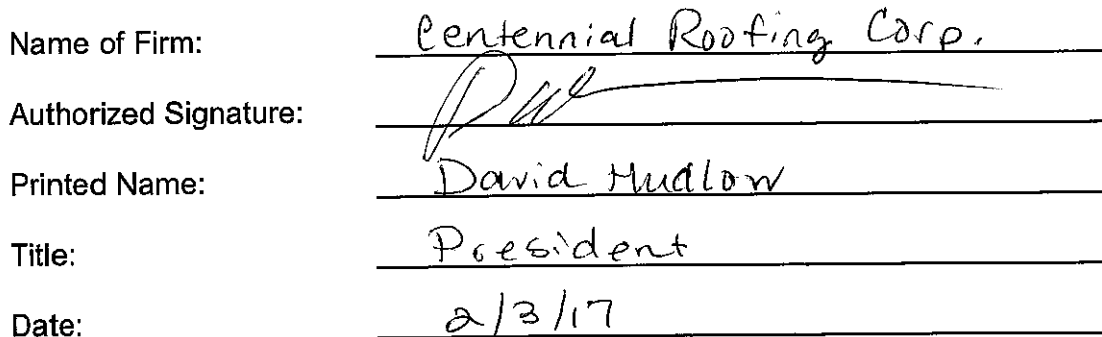 Name of Firm: Centennial Roofing Corp.
Authorized Signature:
Printed Name: David Hudlow
Title: President
Date: 2/3/17